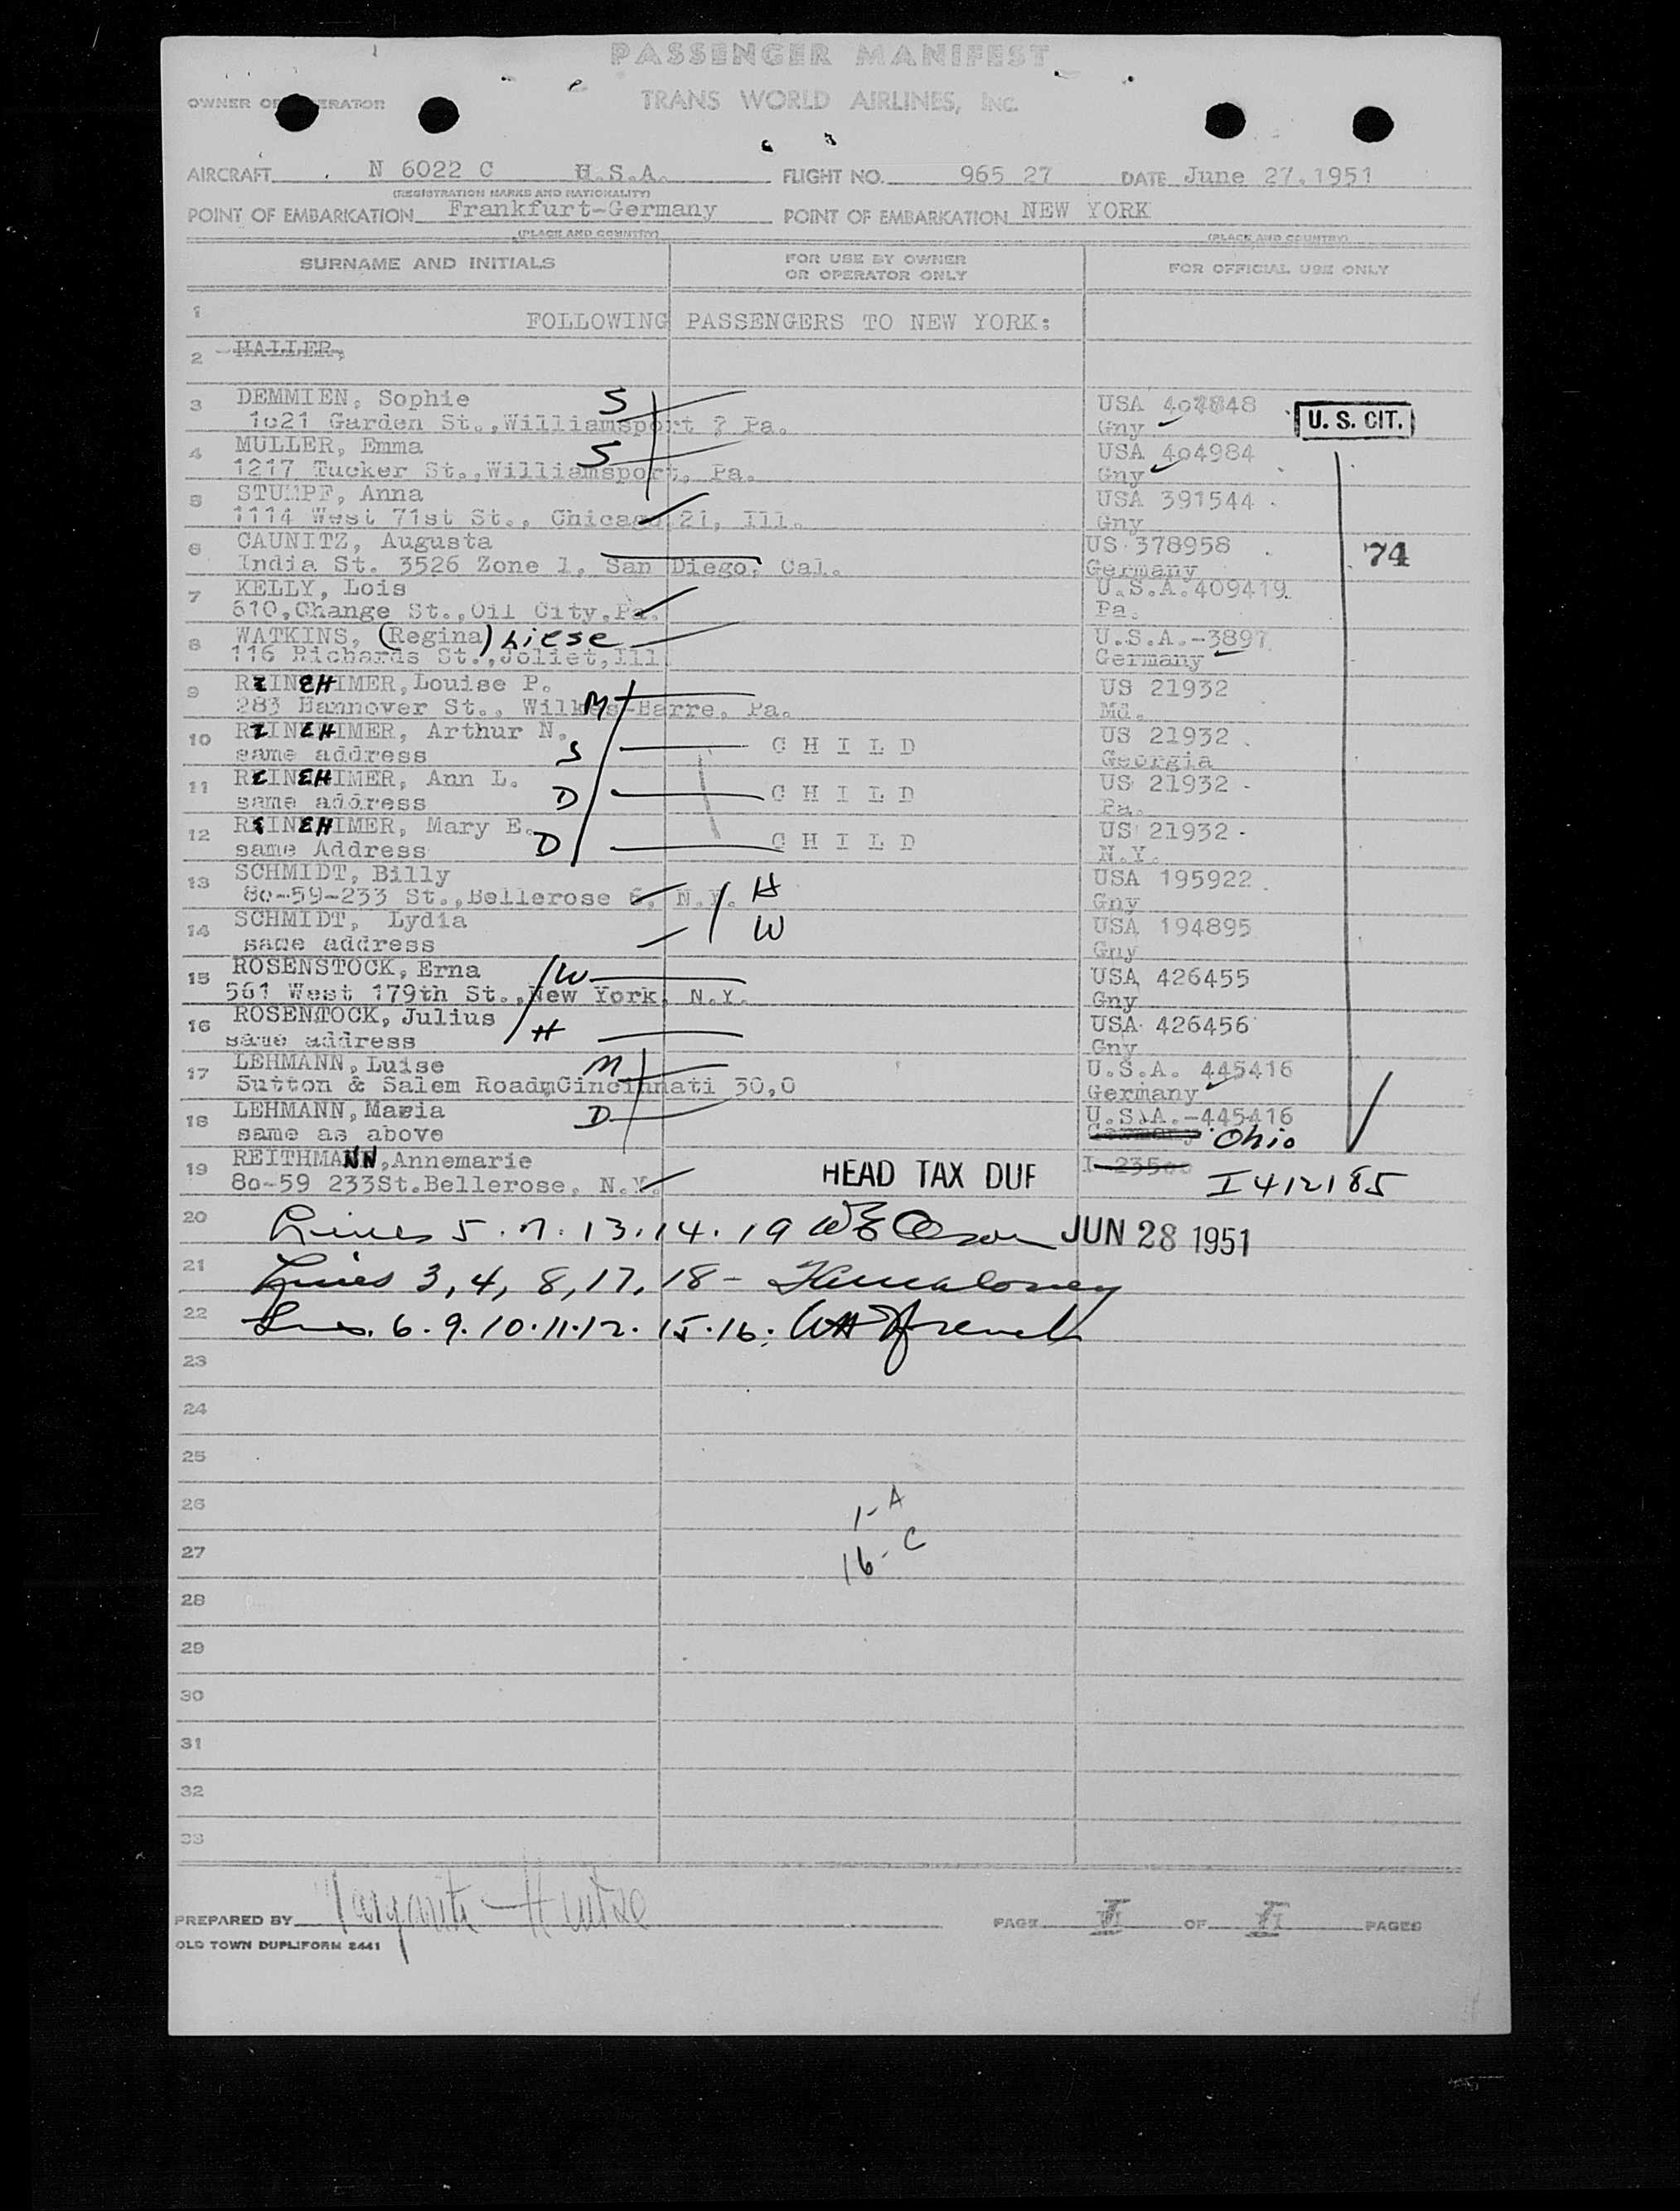 PASSENGER MANIFEST
OWNER OR OPERATOR
TRANS WORLD AIRLINES, INC.
AIRCRAFT N 6022 C U.S.A. FLIGHT NO. 965 27 DATE June 27.1951
(REGISTRATION MARKS AND NATIONALITY)
POINT OF EMBARKATION Frankfurt-Germany POINT OF EMBARKATION NEW YORK
(PLACE AND COUNTRY) (PLACE AND COUNTRY)
SURNAME AND INITIALS FOR USE BY OWNER OR OPERATOR ONLY FOR OFFICIAL USE ONLY
1 FOLLOWING PASSENGERS TO NEW YORK:
2 HALLER,
3 DEMMIEN, Sophie S USA
1o21 Garden St.,Williamsport ? Pa. Gny U. S. CIT.
4 MULLER, Emma S USA 4o4984
1217 Tucker St.,Williamsport, Pa. Gny
5 STUMPF, Anna USA 391544
1114 West 71st St., Chicago 21, Ill. Gny
6 CAUNITZ, Augusta US 378958 74
India St. 3526 Zone 1, San Diego, Cal. Germany
7 KELLY, Lois U.S.A.409419
610,Change St.,Oil City,Pa. Pa.
8 WATKINS, (Regina) Liese U.S.A.-3897
116 Richards St.,Joliet,Ill. Germany
9 REINEHIMER, Louise P. US 21932
283 Hannover St., Wilkes-Barre, Pa. M Md.
10 REINEHIMER, Arthur N. US 21932
same address S C H I L D Georgia
11 REINEHIMER, Ann L. US 21932
same address D C H I L D Pa.
12 REINEHIMER, Mary E. US 21932
same Address D C H I L D N.Y.
13 SCHMIDT, Billy H USA 195922
8o-59-233 St.,Bellerose 6, N.Y. Gny
14 SCHMIDT, Lydia W USA 194895
same address Gny
15 ROSENSTOCK, Erna W USA 426455
561 West 179th St.,New York, N.Y. Gny
16 ROSENTOCK, Julius H USA 426456
same address Gny
17 LEHMANN, Luise M U.S.A. 445416
Sutton & Salem Road,Cincinnati 30,O Germany
18 LEHMANN, Maria D U.S.A.-445416
same as above Germany Ohio
19 REITHMANN,Annemarie HEAD TAX DUE
8o-59 233St.Bellerose, N.Y. I412185
20 Lines 5. 7. 13. 14. 19 JUN 28 1951
21 Lines 3, 4, 8, 17, 18 -
22 Lines. 6. 9. 10. 11. 12. 15. 16.
23
24
25
26 1-A
27 16-C
28
29
30
31
32
33
PREPARED BY PAGE OF PAGES
OLD TOWN DUPLIFORM 8441